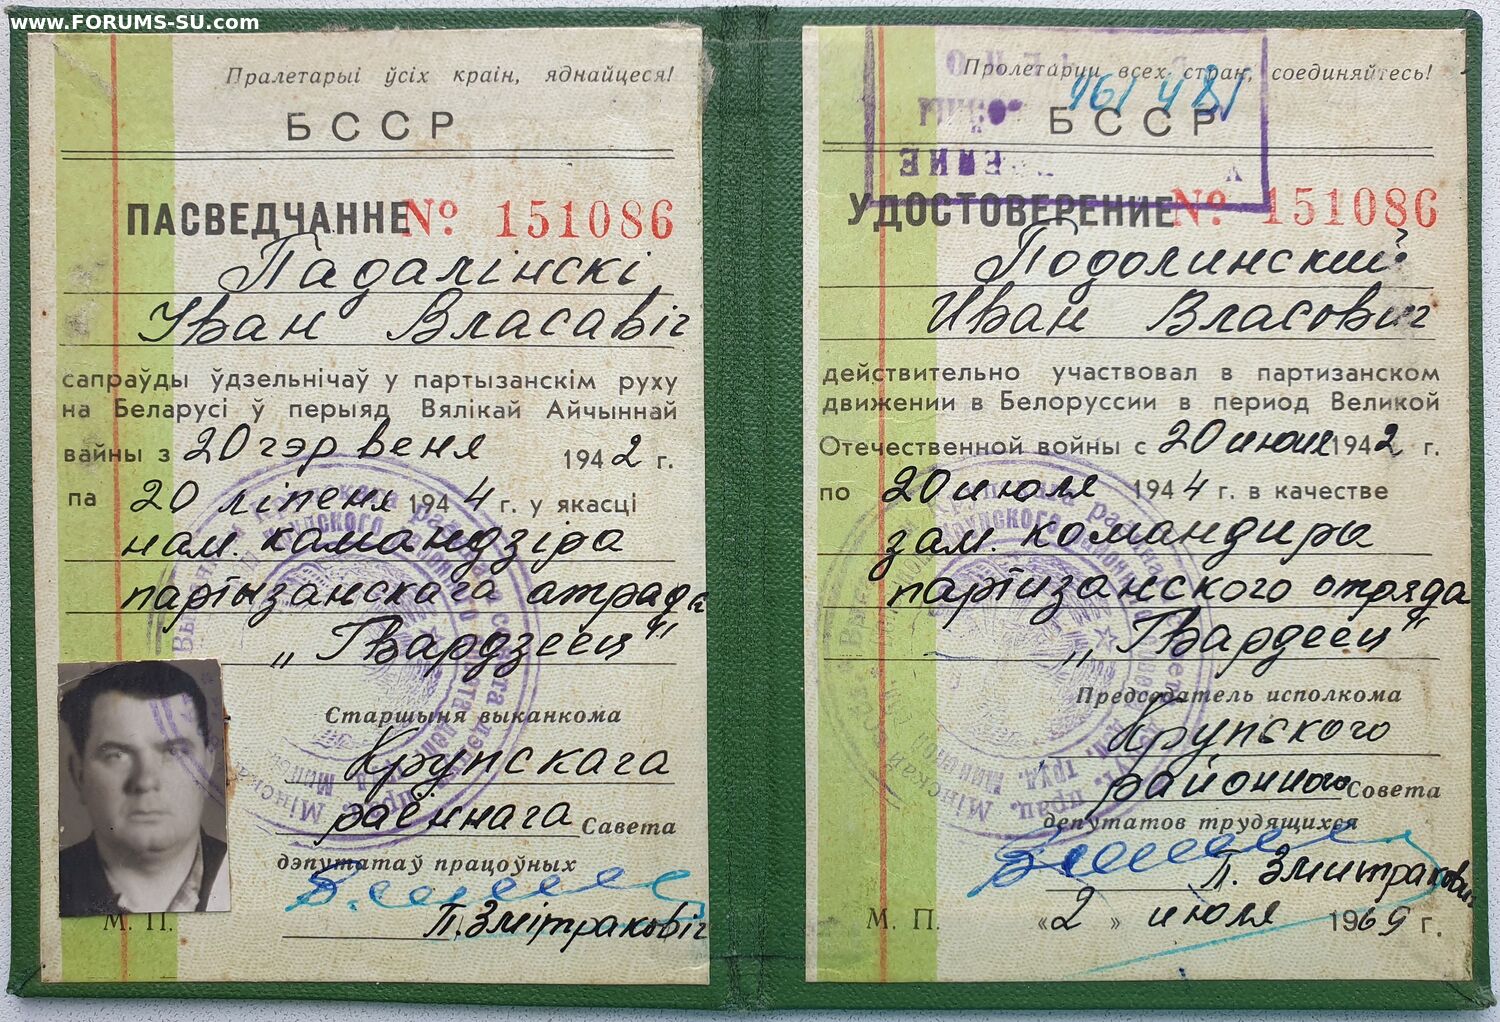 www.FORUMS-SU.com
Пралетарыі ўсіх краін, яднайцеся!
БССР
ПАСВЕДЧАННЕ № 151086
Падалінскі
Іван Власавіч
сапраўды ўдзельнічаў у партызанскім руху
на Беларусі ў перыяд Вялікай Айчыннай
вайны з 20 чэрвеня 1942 г.
па 20 ліпеня 1944 г. у якасці
нам. камандзіра
партызанскага атрада
„Гвардзеец"
Старшыня выканкома
Крупскага
раённага Савета
дэпутатаў працоўных
П. Змітраковіч
М. П.
Пролетарии всех стран, соединяйтесь!
961481
БССР
УДОСТОВЕРЕНИЕ № 151086
Подолинский
Иван Власович
действительно участвовал в партизанском
движении в Белоруссии в период Великой
Отечественной войны с 20 июня 1942 г.
по 20 июля 1944 г. в качестве
зам. командира
партизанского отряда
„Гвардеец"
Председатель исполкома
Крупского
районного Совета
депутатов трудящихся
П. Змитракович
М. П. «2» июля 1969 г.